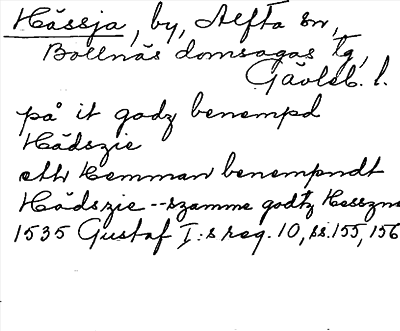 Hässja, by, Alfta sn,
Bollnäs domsagas tg,
Gävleb. l.
på it godz benempd
Hädszie
ettt Hemman benempndt
Hädszie -- szamme godtz Hesszna
1535 Gustaf I:s reg. 10, ss. 155, 156